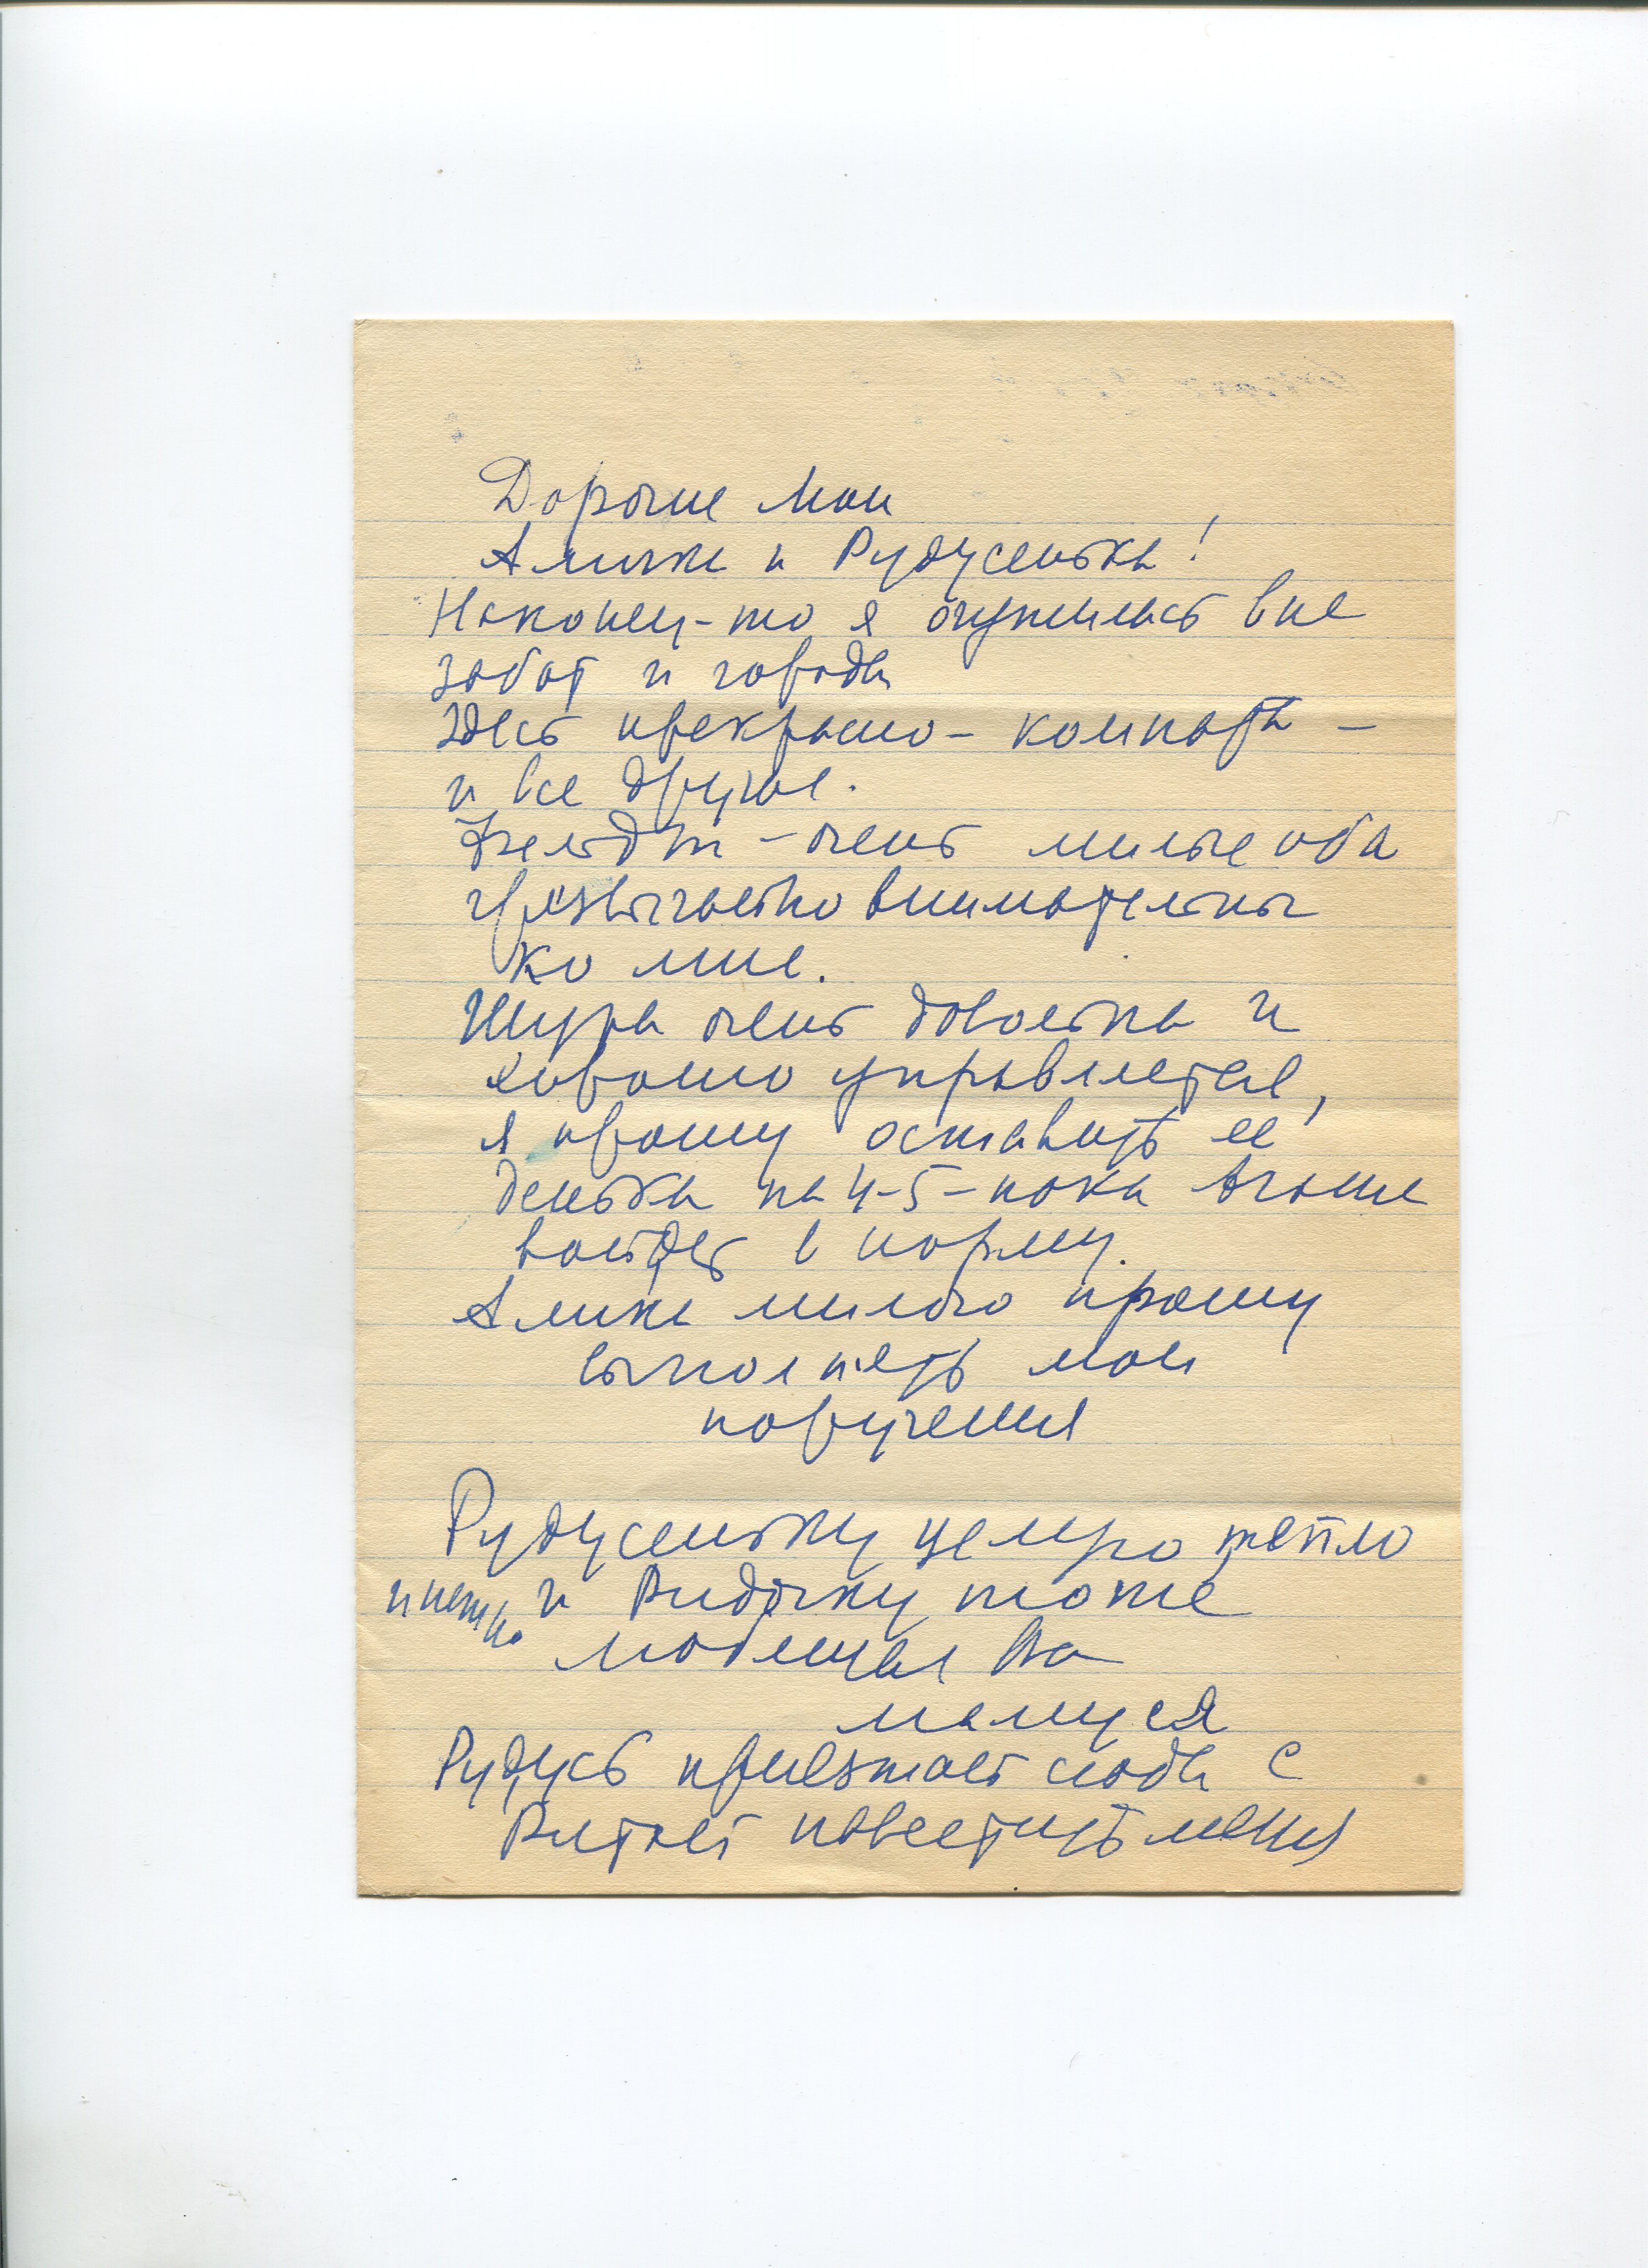 Дорогие мои
Алична и Рудусенька!
Наконец-то я очутилась вне
забот и города
Здесь прекрасно - комната -
и все другое.
Фельдт - очень милые оба
чрезвычайно внимательны
ко мне.
Шура очень довольна и
хорошо управляется,
я прошу оставить ее
денька на 4-5 - пока
войдет в норму.
милого прошу
выполнить мои
поручения
Рудусеньку целую тепло
и нежно и Видочку тоже
любящая Вас
мамуся
Рудусь приезжает сюда с
Витой навестить меня